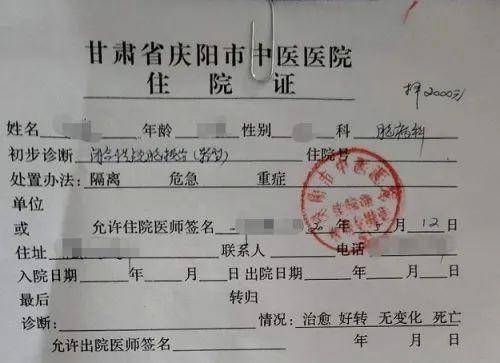 甘肃省庆阳市中医医院
住 院 证
押2000元
姓名 年龄 性别 科 脑病科
初步诊断 闭合性颅脑损伤(轻型) 住院号
处置办法: 隔离 危急 重症
单位
或 允许住院医师签名 月12日
住址 联系人 电话
入院日期 年 月 日 出院日期 年 月 日
最后 转归
诊断: 情况: 治愈 好转 无变化 死亡
允许出院医师签名 年 月 日
庆阳市中医医院